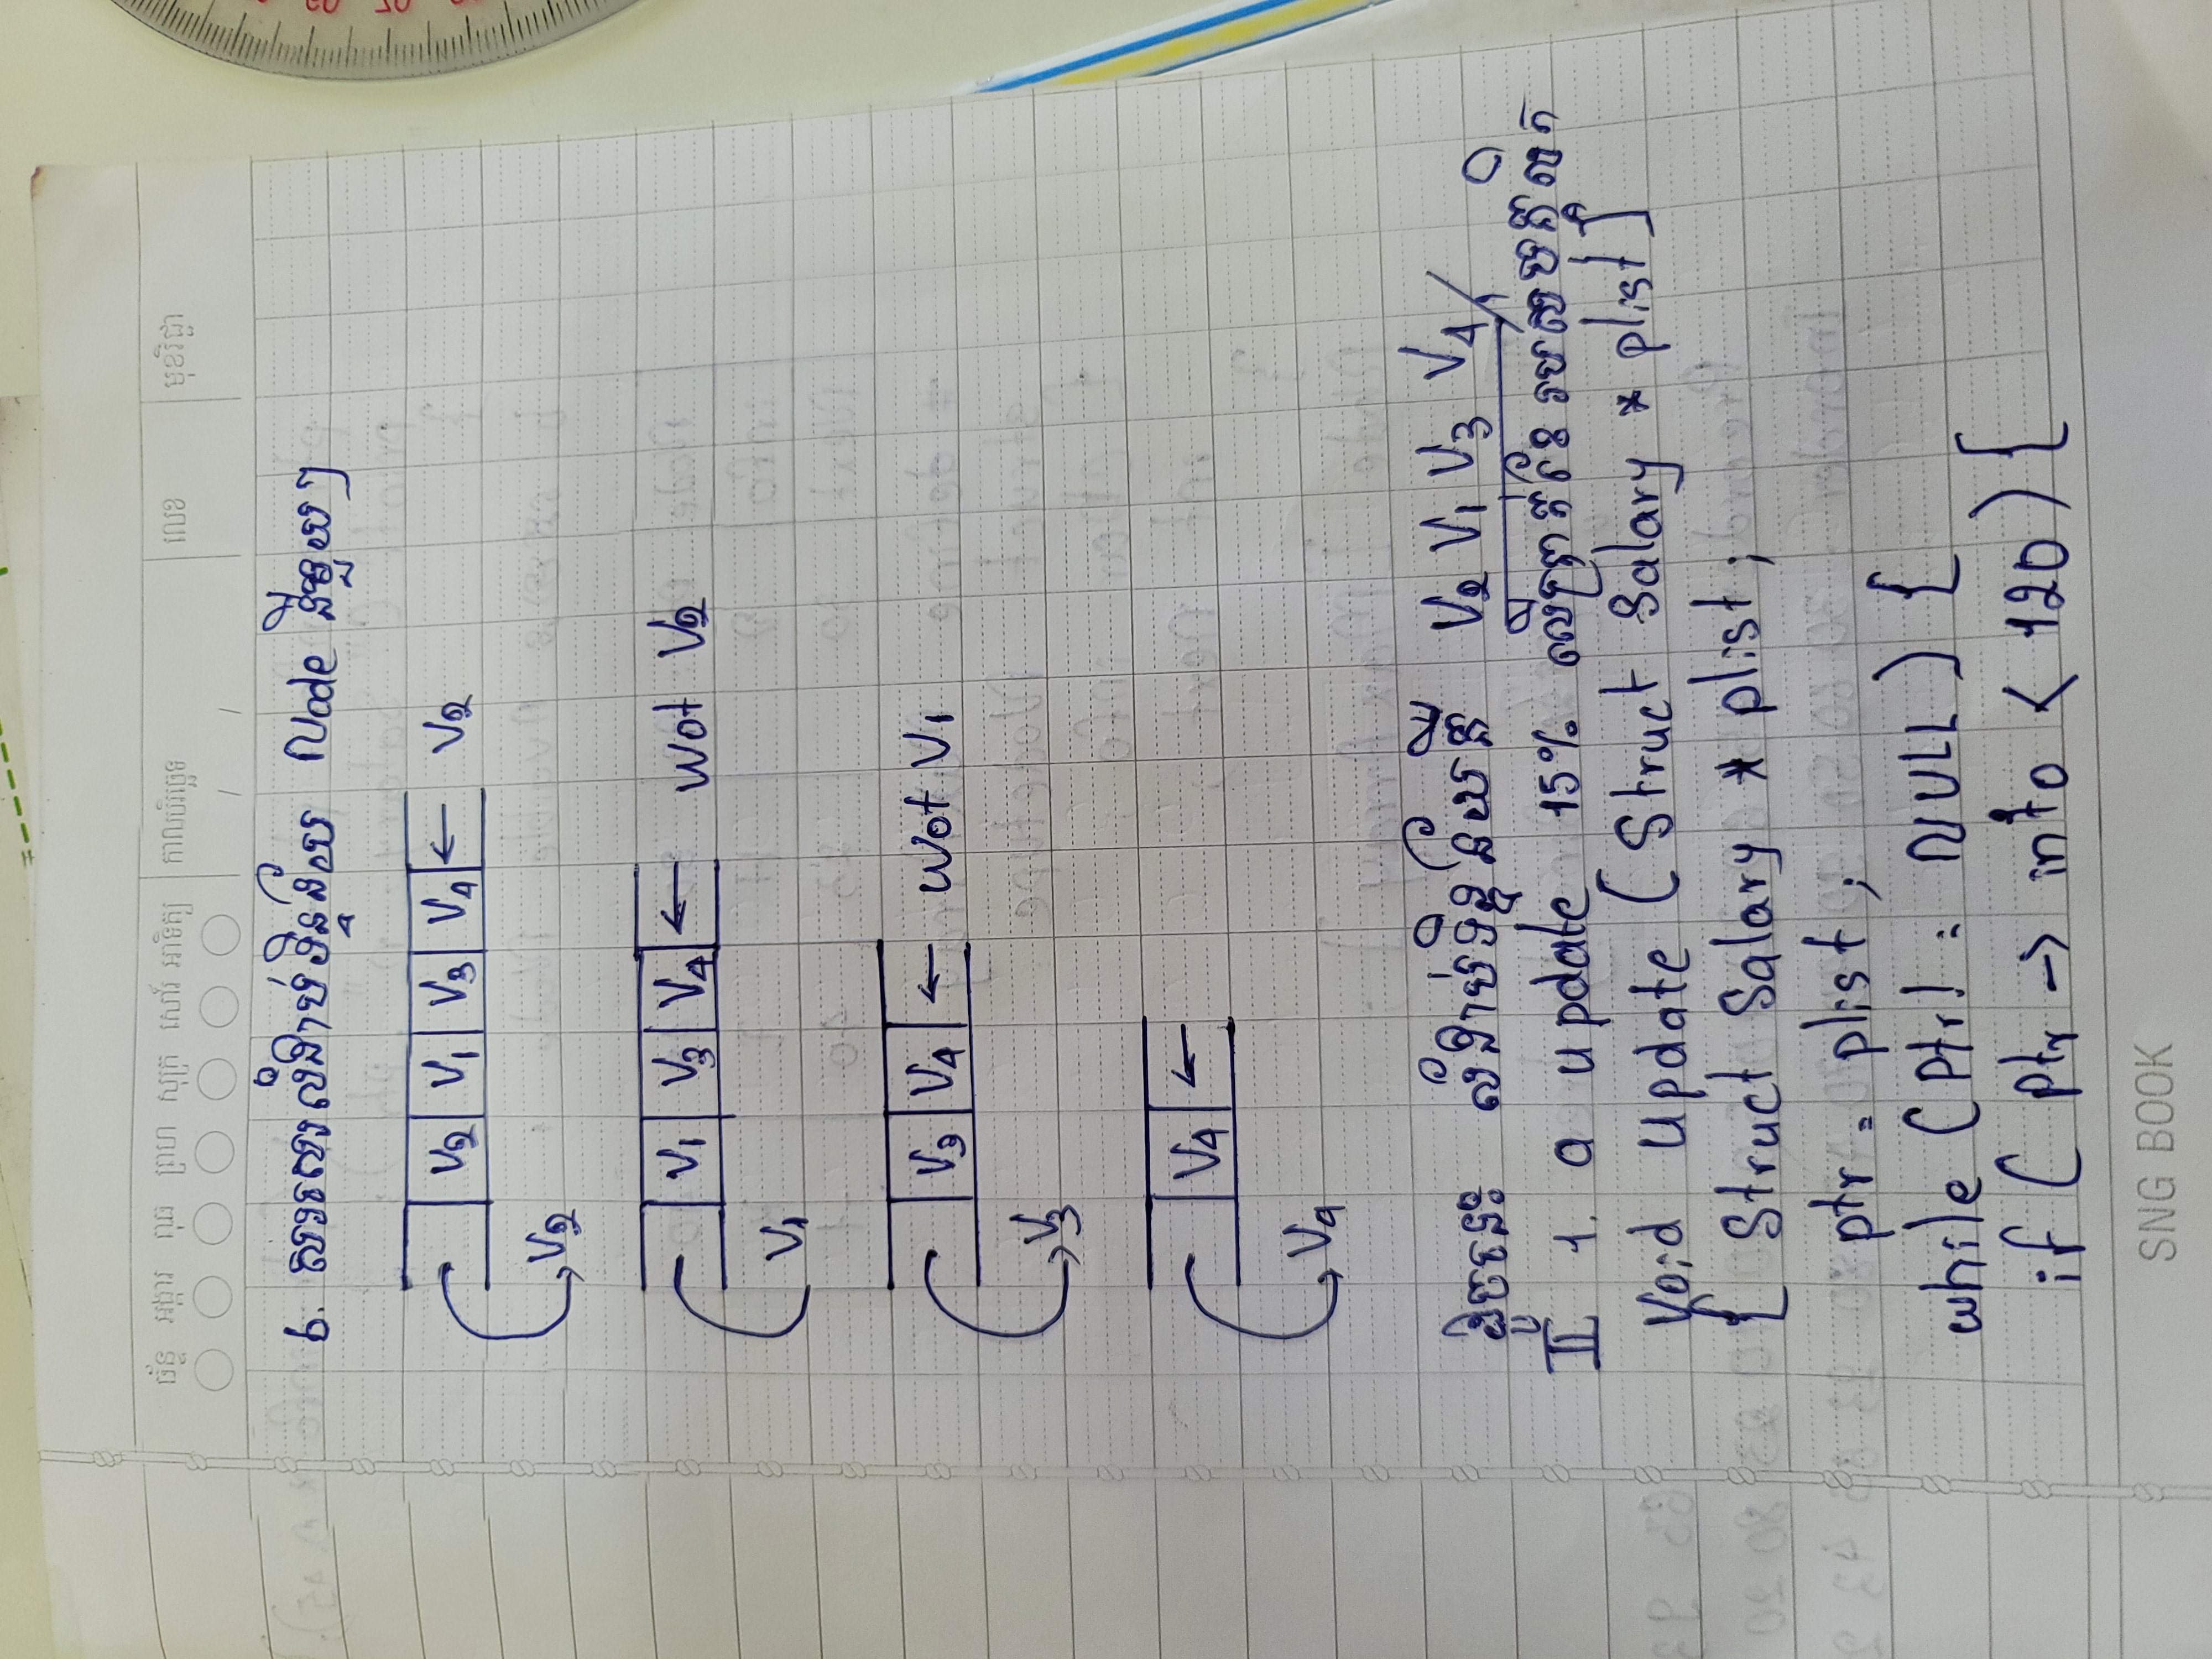 ច័ន្ទ អង្គារ ពុធ ព្រហ សុក្រ សៅរ៍ អាទិត្យ កាលបរិច្ឆេទ លេខ មុខវិជ្ជា
/ /
b. សរសេរលំដាប់ទិន្នន័យ Node នីមួយៗ
V2 V1 V3 V4 ← V2
V2
V1 V3 V4 ← Wot V2
V1
V3 V4 ← Wot V1
V3
V4 ←
V4
ដូចនេះ លំដាប់ទិន្នន័យគឺ V2 V1 V3 V4
II 1. a update 15% លើប្រាក់ខែរបស់បុគ្គលិក
Void Update (Struct Salary * plist)
{ Struct Salary * plist;
ptr = plist;
while (Ptr! = NULL) {
if ( Ptr -> info < 120) {
SNG BOOK